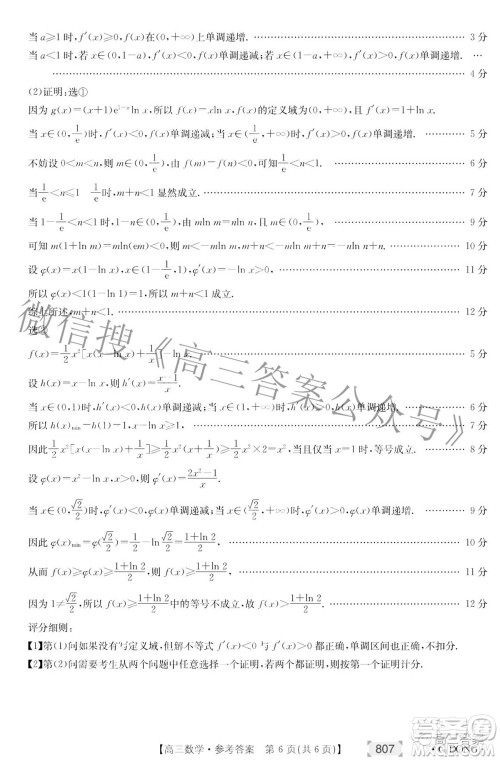 当 a≥1 时,f′(x)>0,f(x)在(0,+∞)上单调递增. 3 分
当 a<1 时,若 x∈(0,1-a),f′(x)<0,f(x)单调递减;若 x∈(1-a,+∞),f′(x)>0,f(x)单调递增.
4 分
(2)证明:选①
因为 g(x)=(x+1)e ln x,所以 f(x)=xln x,f(x)的定义域为(0,+∞),且 f′(x)=1+ln x.
当 x∈(0,1/e)时,f′(x)<0,f(x)单调递减;当 x∈(1/e,+∞)时,f′(x)>0,f(x)单调递增. 5 分
不妨设 0<m<n,则 m∈(0,1/e),由 f(m)=f(n)<0,可知 1/e<n<1. 6 分
当 1/e<n≤1-1/e 时,m+n<1 显然成立. 7 分
当 1-1/e<n<1 时,ln n∈(-1,0),由 mln m=nln n,得 mln m>-n. 9 分
可知 m(1+ln m)=mln(em)<0,则 m<-mln m,所以 m+n<n-mln m=n-nln n. 10 分
设 φ(x)=x(1-ln x),x∈(1-1/e,1),φ′(x)=-ln x>0,
所以 φ(x)<1(1-ln 1)=1,所以 m+n<1.
综上所述,m+n<1. 12 分
选②
f(x)=1/2 x²[x(x-ln x)+1/x]-ln x. 5 分
设 h(x)=x-ln x,则 h′(x)=(x-1)/x.
当 x∈(0,1)时,h′(x)<0,h(x)单调递减;当 x∈(1,+∞)时,h′(x)>0,h(x)单调递增. 6 分
所以 h(x)min=h(1)=1. 7 分
因此 1/2 x²[x(x-ln x)+1/x]≥1/2 x²(x+1/x)≥1/2 x²×2=x²,当且仅当 x=1 时,等号成立. 8 分
设 φ(x)=x²-ln x,φ′(x)=(2x²-1)/x.
当 x∈(0,√2/2)时,φ′(x)<0,φ(x)单调递减;当 x∈(√2/2,+∞)时,φ′(x)>0,φ(x)单调递增. 9 分
因此 φ(x)min=φ(√2/2)=1/2-ln √2/2=(1+ln 2)/2. 10 分
从而 f(x)≥φ(x)≥(1+ln 2)/2,则 f(x)≥(1+ln 2)/2. 11 分
因为 1≠√2/2,所以 f(x)≥(1+ln 2)/2 中的等号不成立,故 f(x)>(1+ln 2)/2. 12 分
评分细则:
【1】第(1)问如果没有写定义域,但解不等式 f′(x)<0 与 f′(x)>0 都正确,单调区间也正确,不扣分.
【2】第(2)问需要考生从两个问题中任意选择一个证明,若两个都证明,则按第一个证明计分.
微信搜《高三答案公众号》
【高三数学·参考答案 第 6 页(共 6 页)】 807
高三答案